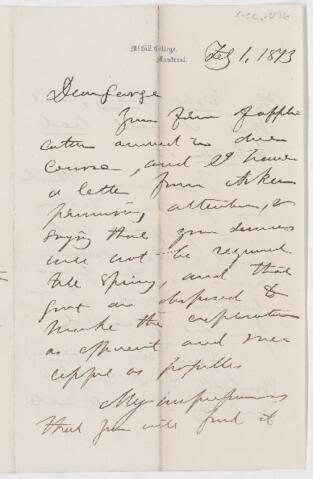 McGill College,
Montreal.
Feb 1, 1873
Dear George
Your form of applic
ation arrived in due
course, and I have
a letter from
promising attention, &
saying that your services
will not be required
till spring, and that
govt are disposed to
make the exploration
as efficient and
as possible
My impression is
that you will find it